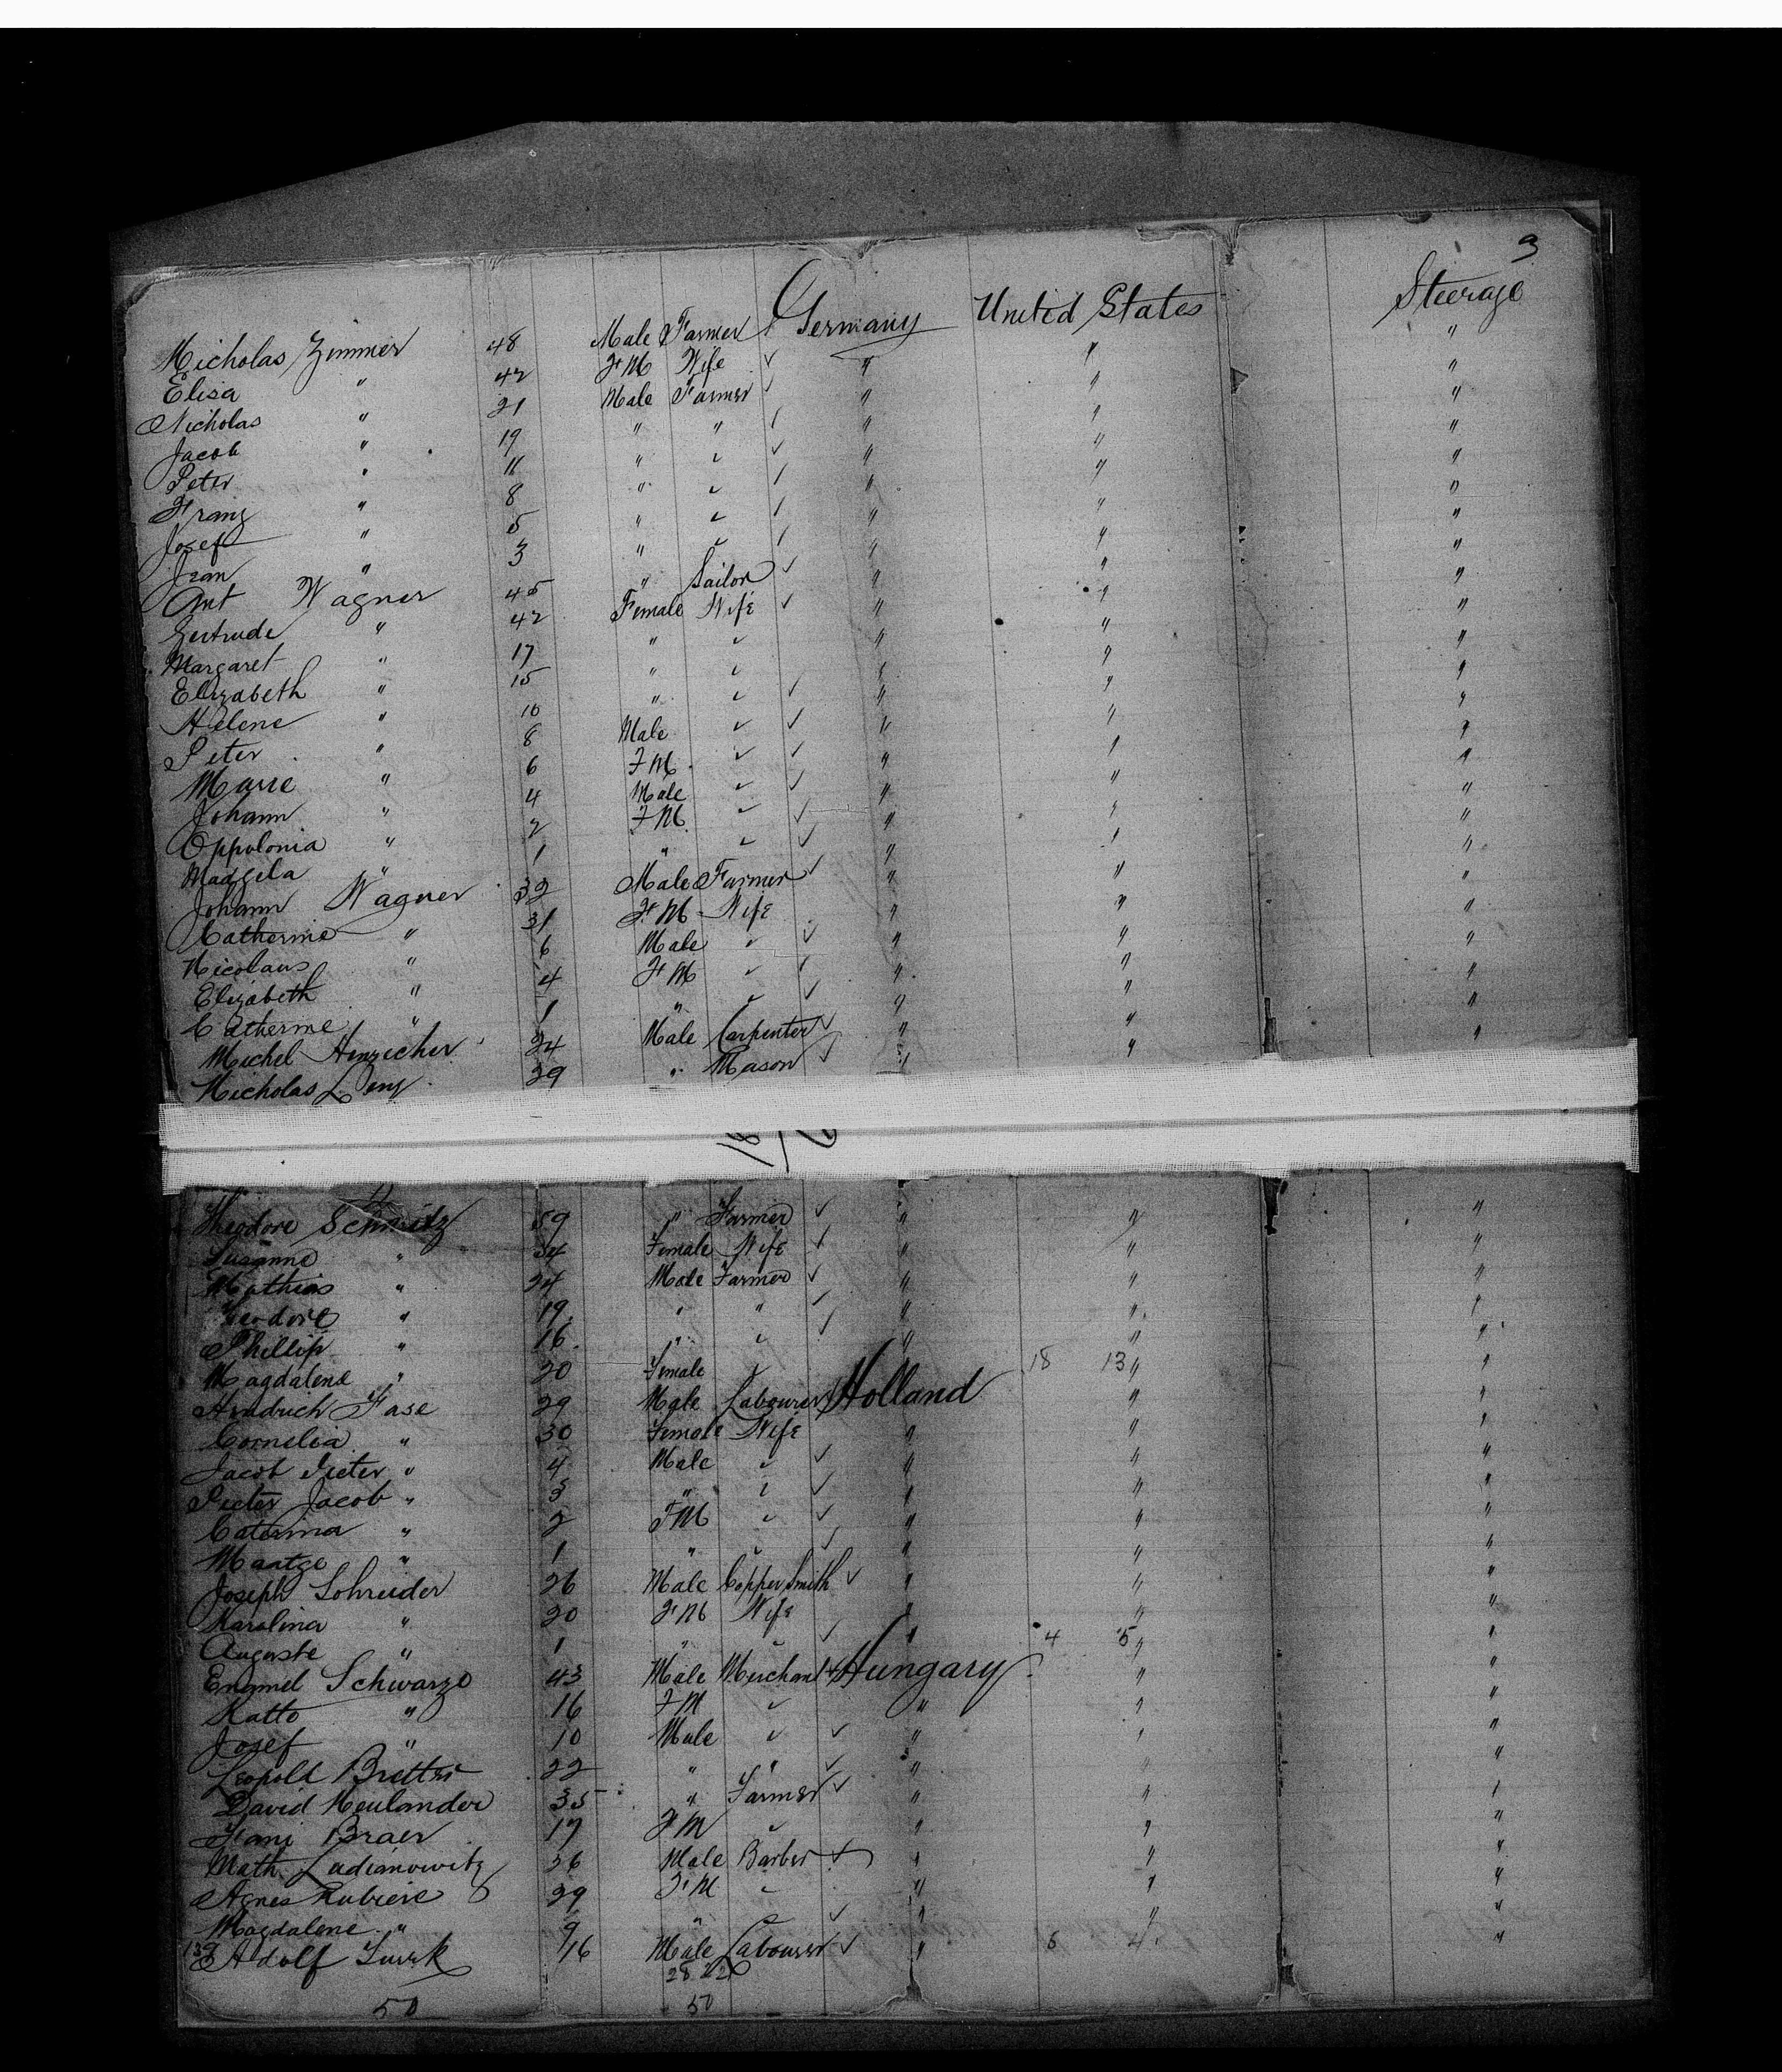 3
Nicholas Zimmer 48 Male Farmer Germany United States Steerage
Elisa " 42 F M Wife ✓ " " "
Nicholas " 21 Male Farmer ✓ " " "
Jacob " 19 " " ✓ " " "
Peter " 11 " ✓ ✓ " " "
Franz " 8 " ✓ ✓ " " "
Josef " 5 " ✓ ✓ " " "
Jean " 3 " ✓ ✓ " " "
Ant Wagner 45 " Sailor ✓ " " "
Gertrude " 42 Female Wife ✓ " " "
Margaret " 17 " ✓ " " "
Elizabeth " 15 " ✓ " " "
Helene " 10 " ✓ ✓ " " "
Peter " 8 Male ✓ ✓ " " "
Marie " 6 F M ✓ ✓ " " "
Johann " 4 Male ✓ ✓ " " "
Oppolonia " 2 F M ✓ ✓ " " "
Madgela " 1 " ✓ ✓ " " "
Johann Wagner 32 Male Farmer ✓ " " "
Catherine " 31 F M Wife " " "
Nicolaus " 6 Male ✓ ✓ " " "
Elizabeth " 4 F M ✓ ✓ " " "
Catherine " 1 " ✓ ✓ " " "
Michel 24 Male Carpenter ✓ " " "
Nicholas 29 " Mason ✓ " "
Theodore Schmitz 59 " Farmer ✓ " " "
Susanne " 54 Female Wife ✓ " " "
Mathias " 24 Male Farmer ✓ " " "
Teodore " 19 " " ✓ " " "
Phillip " 16 " ✓ ✓ " " "
Magdalena " 20 Female ✓ 18 13 " "
Hendrich Fase 29 Male Labourer Holland " "
Cornelia " 30 Female Wife " " "
Jacob Pieter " 4 Male ✓ ✓ " " "
Pieter Jacob " 3 " ✓ ✓ " " "
Caterina " 2 F M ✓ ✓ " " "
Maatge " 1 " ✓ ✓ " " "
Joseph Schreider 26 Male Copper Smith ✓ " " "
Karolina " 20 F M Wife " " "
Auguste " 1 " ✓ ✓ " 4 5 " "
Emamel Schwarze 43 Male Merchant Hungary " "
Katto " 16 F M ✓ " " "
Josef " 10 Male ✓ ✓ " " "
Leopold Bretter 22 " " ✓ " " "
David Neulander 35 " Farmer ✓ " " "
Fani Braer 17 F M ✓ " " "
Math. Ladianowitz 36 Male Barber ✓ " " "
Agnes 29 F M ✓ " " "
Magdalene " 9 " ✓ ✓ " " "
Adolf 16 Male Labourer ✓ " 6 4 "
28 22
50 50